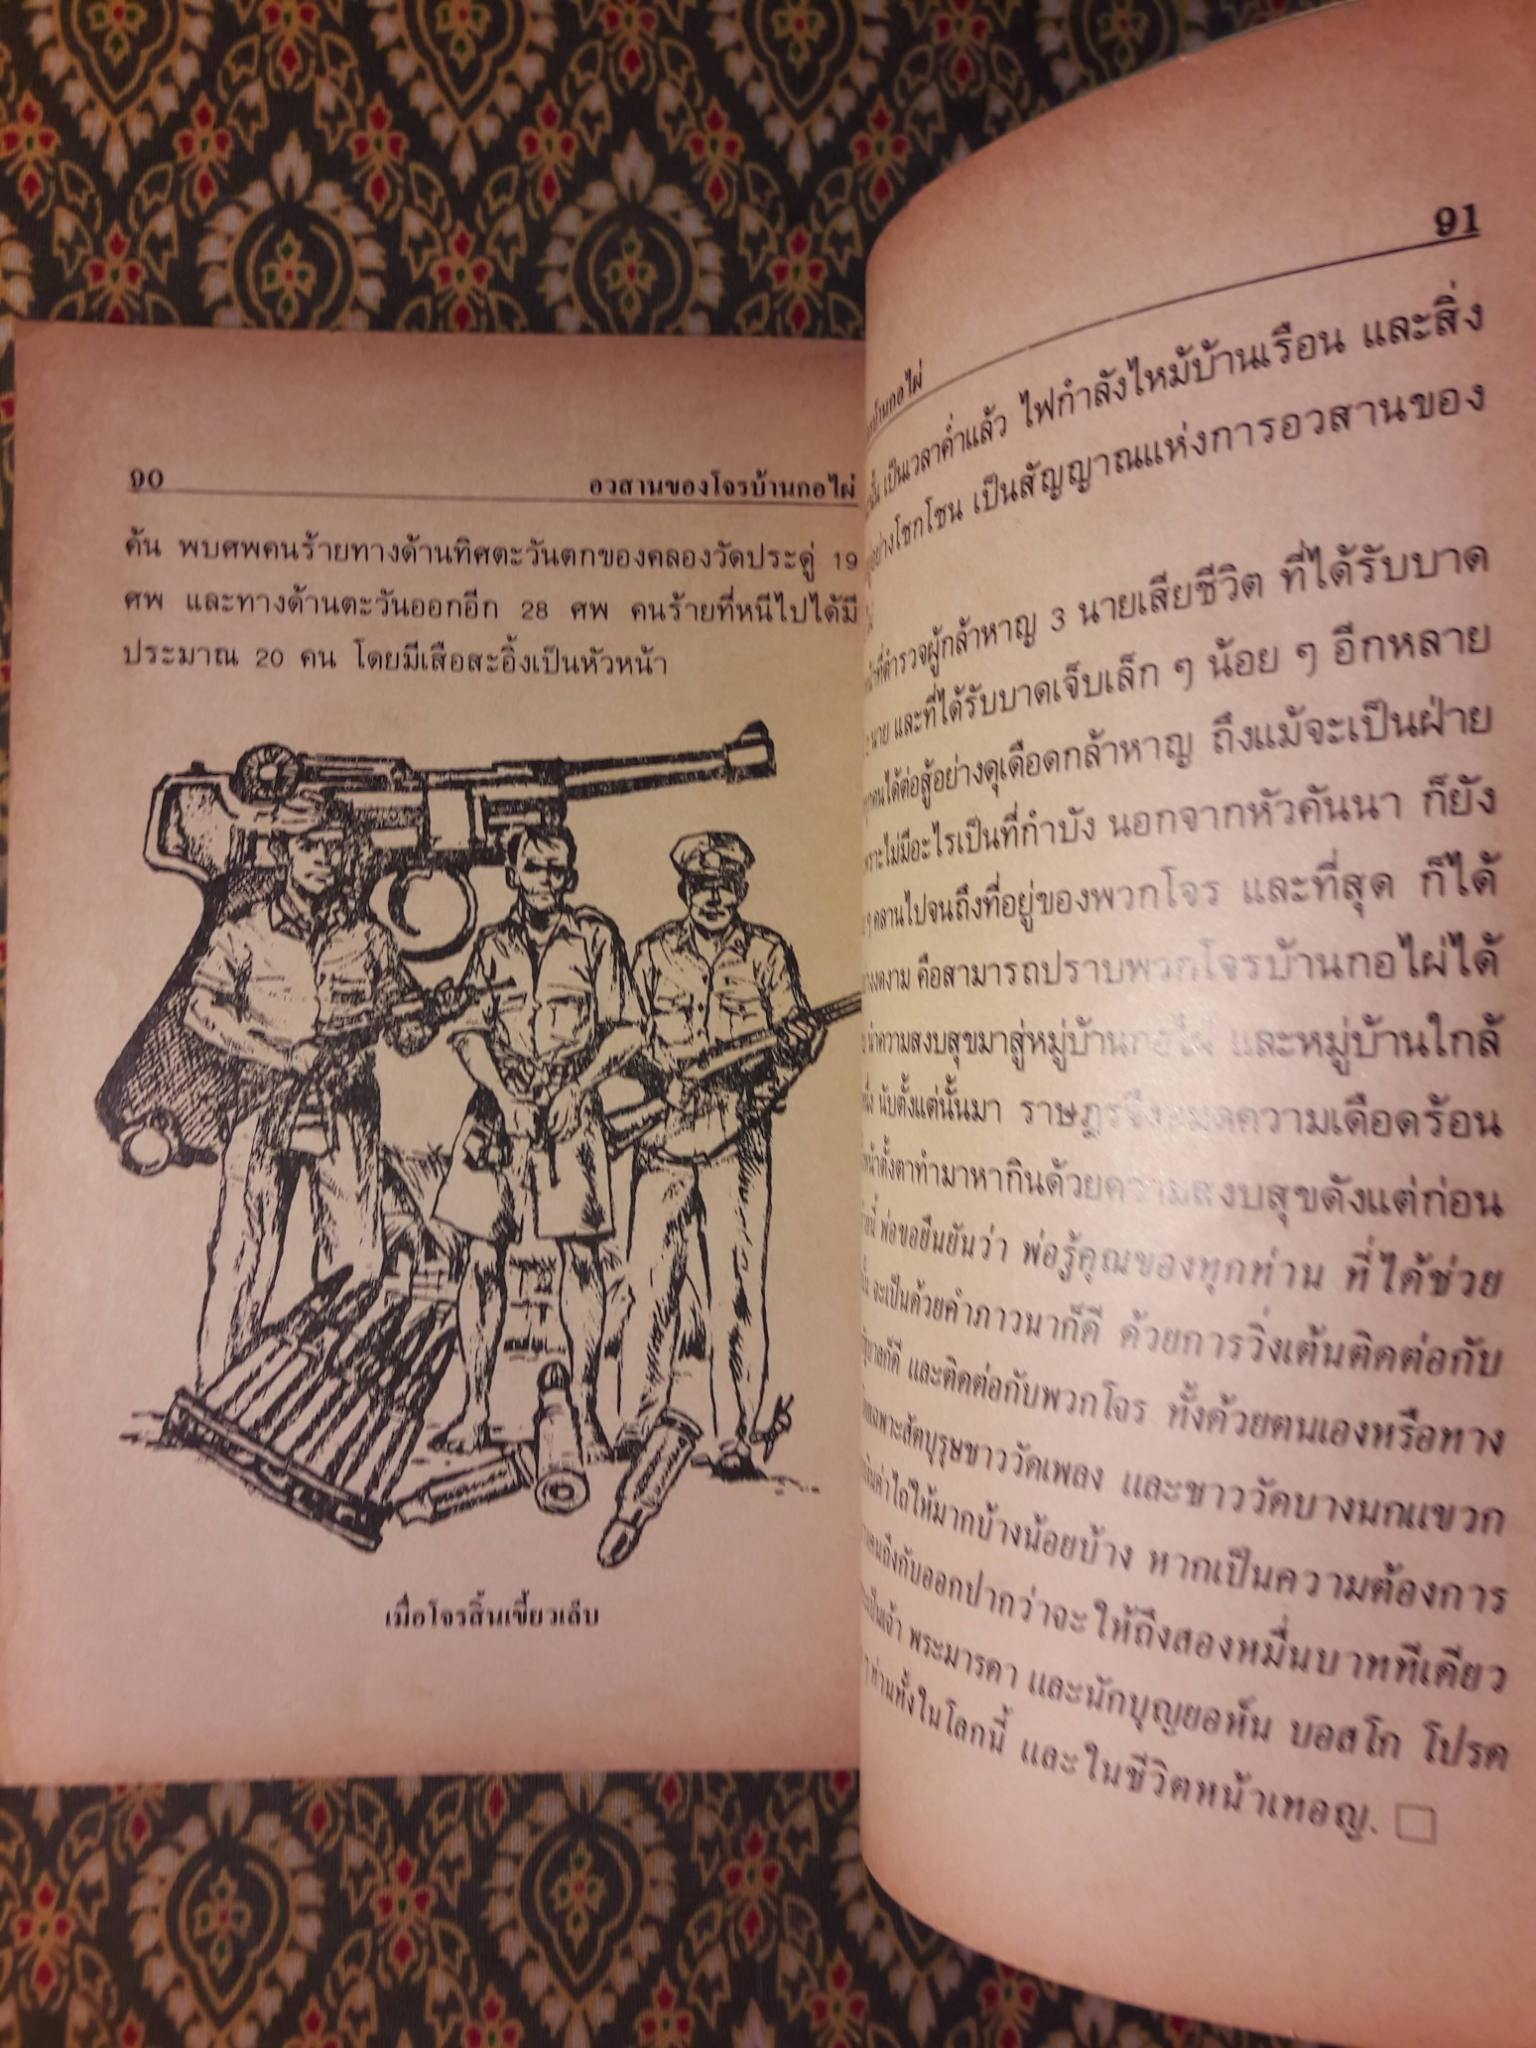 ๑๐ อวสานของโจรบ้านกอไผ่
ค้น พบศพคนร้ายทางด้านทิศตะวันตกของคลองวัดประดู่ 19
ศพ และทางด้านตะวันออกอีก 28 ศพ คนร้ายที่หนีไปได้มี
ประมาณ 20 คน โดยมีเสือสะอิ้งเป็นหัวหน้า
เมื่อโจรสิ้นเขี้ยวเล็บ
91
บ้านกอไผ่
เป็นเวลาค่ำแล้ว ไฟกำลังไหม้บ้านเรือน และสิ่ง
อย่างโชกโชน เป็นสัญญาณแห่งการอวสานของ
หน้าที่ตำรวจผู้กล้าหาญ 3 นายเสียชีวิต ที่ได้รับบาด
นาย และที่ได้รับบาดเจ็บเล็ก ๆ น้อย ๆ อีกหลาย
ทุกคนได้ต่อสู้อย่างดุเดือดกล้าหาญ ถึงแม้จะเป็นฝ่าย
เพราะไม่มีอะไรเป็นที่กำบัง นอกจากหัวคันนา ก็ยัง
ๆ คลานไปจนถึงที่อยู่ของพวกโจร และที่สุด ก็ได้
งดงาม คือสามารถปราบพวกโจรบ้านกอไผ่ได้
นำความสงบสุขมาสู่หมู่บ้านกอไผ่ และหมู่บ้านใกล้
นับตั้งแต่นั้นมา ราษฎรจึงหมดความเดือดร้อน
หน้าตั้งตาทำมาหากินด้วยความสงบสุขดังแต่ก่อน
นี้ พ่อขอยืนยันว่า พ่อรู้คุณของทุกท่าน ที่ได้ช่วย
จะเป็นด้วยคำภาวนาก็ดี ด้วยการวิ่งเต้นติดต่อกับ
รัฐบาลก็ดี และติดต่อกับพวกโจร ทั้งด้วยตนเองหรือทาง
เฉพาะสัตบุรุษชาววัดเพลง และชาววัดบางนกแขวก
เงินค่าไถ่ให้มากบ้างน้อยบ้าง หากเป็นความต้องการ
คนถึงกับออกปากว่าจะให้ถึงสองหมื่นบาททีเดียว
เป็นเจ้า พระมารดา และนักบุญยอห็น บอสโก โปรด
ๆ ท่านทั้งในโลกนี้ และในชีวิตหน้าเทอญ.